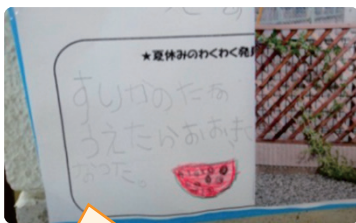 ★夏休みのわくわく発
すいかのたね
うえたらおおき
なった。